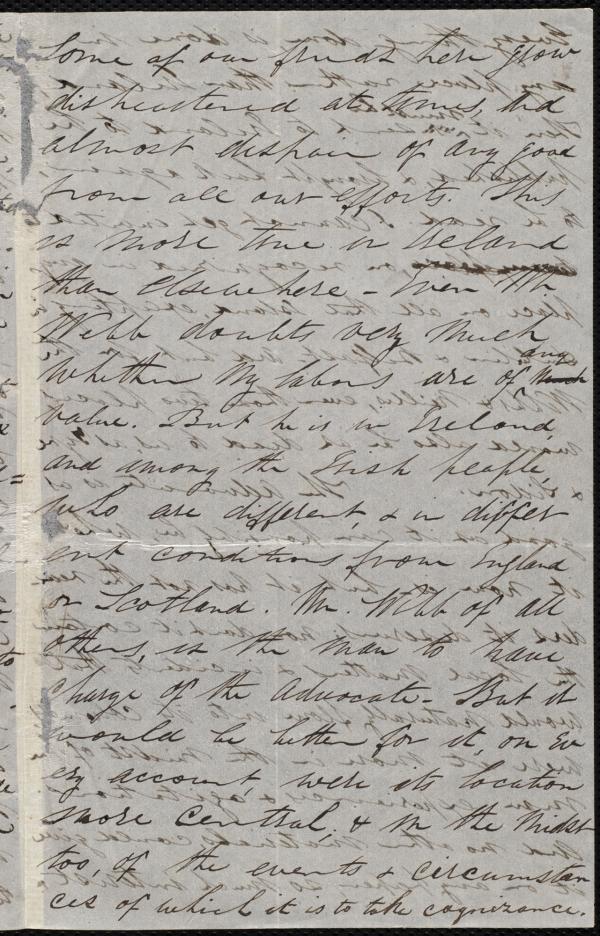 Some of our friends here grow
disheartened at times, and
almost despair of any good
from all our efforts. This
is more true in Ireland
than elsewhere - Even Mr
Webb doubts very much
any
whether my labors are of much
value. But he is in Ireland,
and among the Irish people,
who are different, & in differ
ent conditions from England
or Scotland. Mr. Webb of all
others, is the man to have
charge of the Advocate - But it
would be better for it, on ev
ery account, were its location
more central, & in the midst
too, of the events & circumstan
ces of which it is to take cognizance.